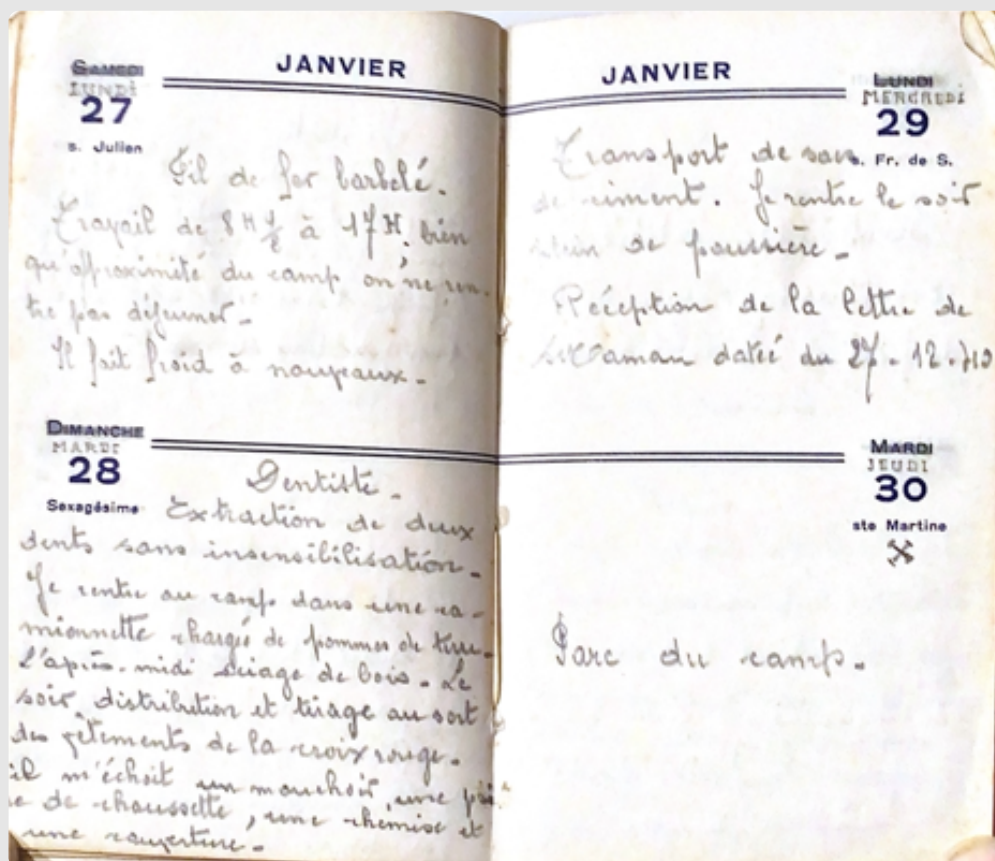 SAMEDI
LUNDI
27
s. Julien
JANVIER
Fil de fer barbelé.
Travail de 8 H ½ à 17 H. bien
qu'approximité du camp on ne ren-
tre pas déjeuner.
Il fait froid à nouveaux.
DIMANCHE
MARDI
28
Sexagésime
Dentiste.
Extraction de deux
dents sans insensibilisation.
Je rentre au camp dans une ca-
mionnette chargée de pommes de terre.
L'après-midi sciage de bois. Le
soir distribution et tirage au sort
des vêtements de la croix rouge.
il m'échoit un mouchoir, une pai-
re de chaussette, une chemise et
une couverture.
JANVIER
LUNDI
MERCREDI
29
s. Fr. de S.
Transport de sacs
de ciment. Je rentre le soir
plein de poussière.
Réception de la lettre de
Maman datée du 27. 12. 40
MARDI
JEUDI
30
ste Martine
Parc du camp.